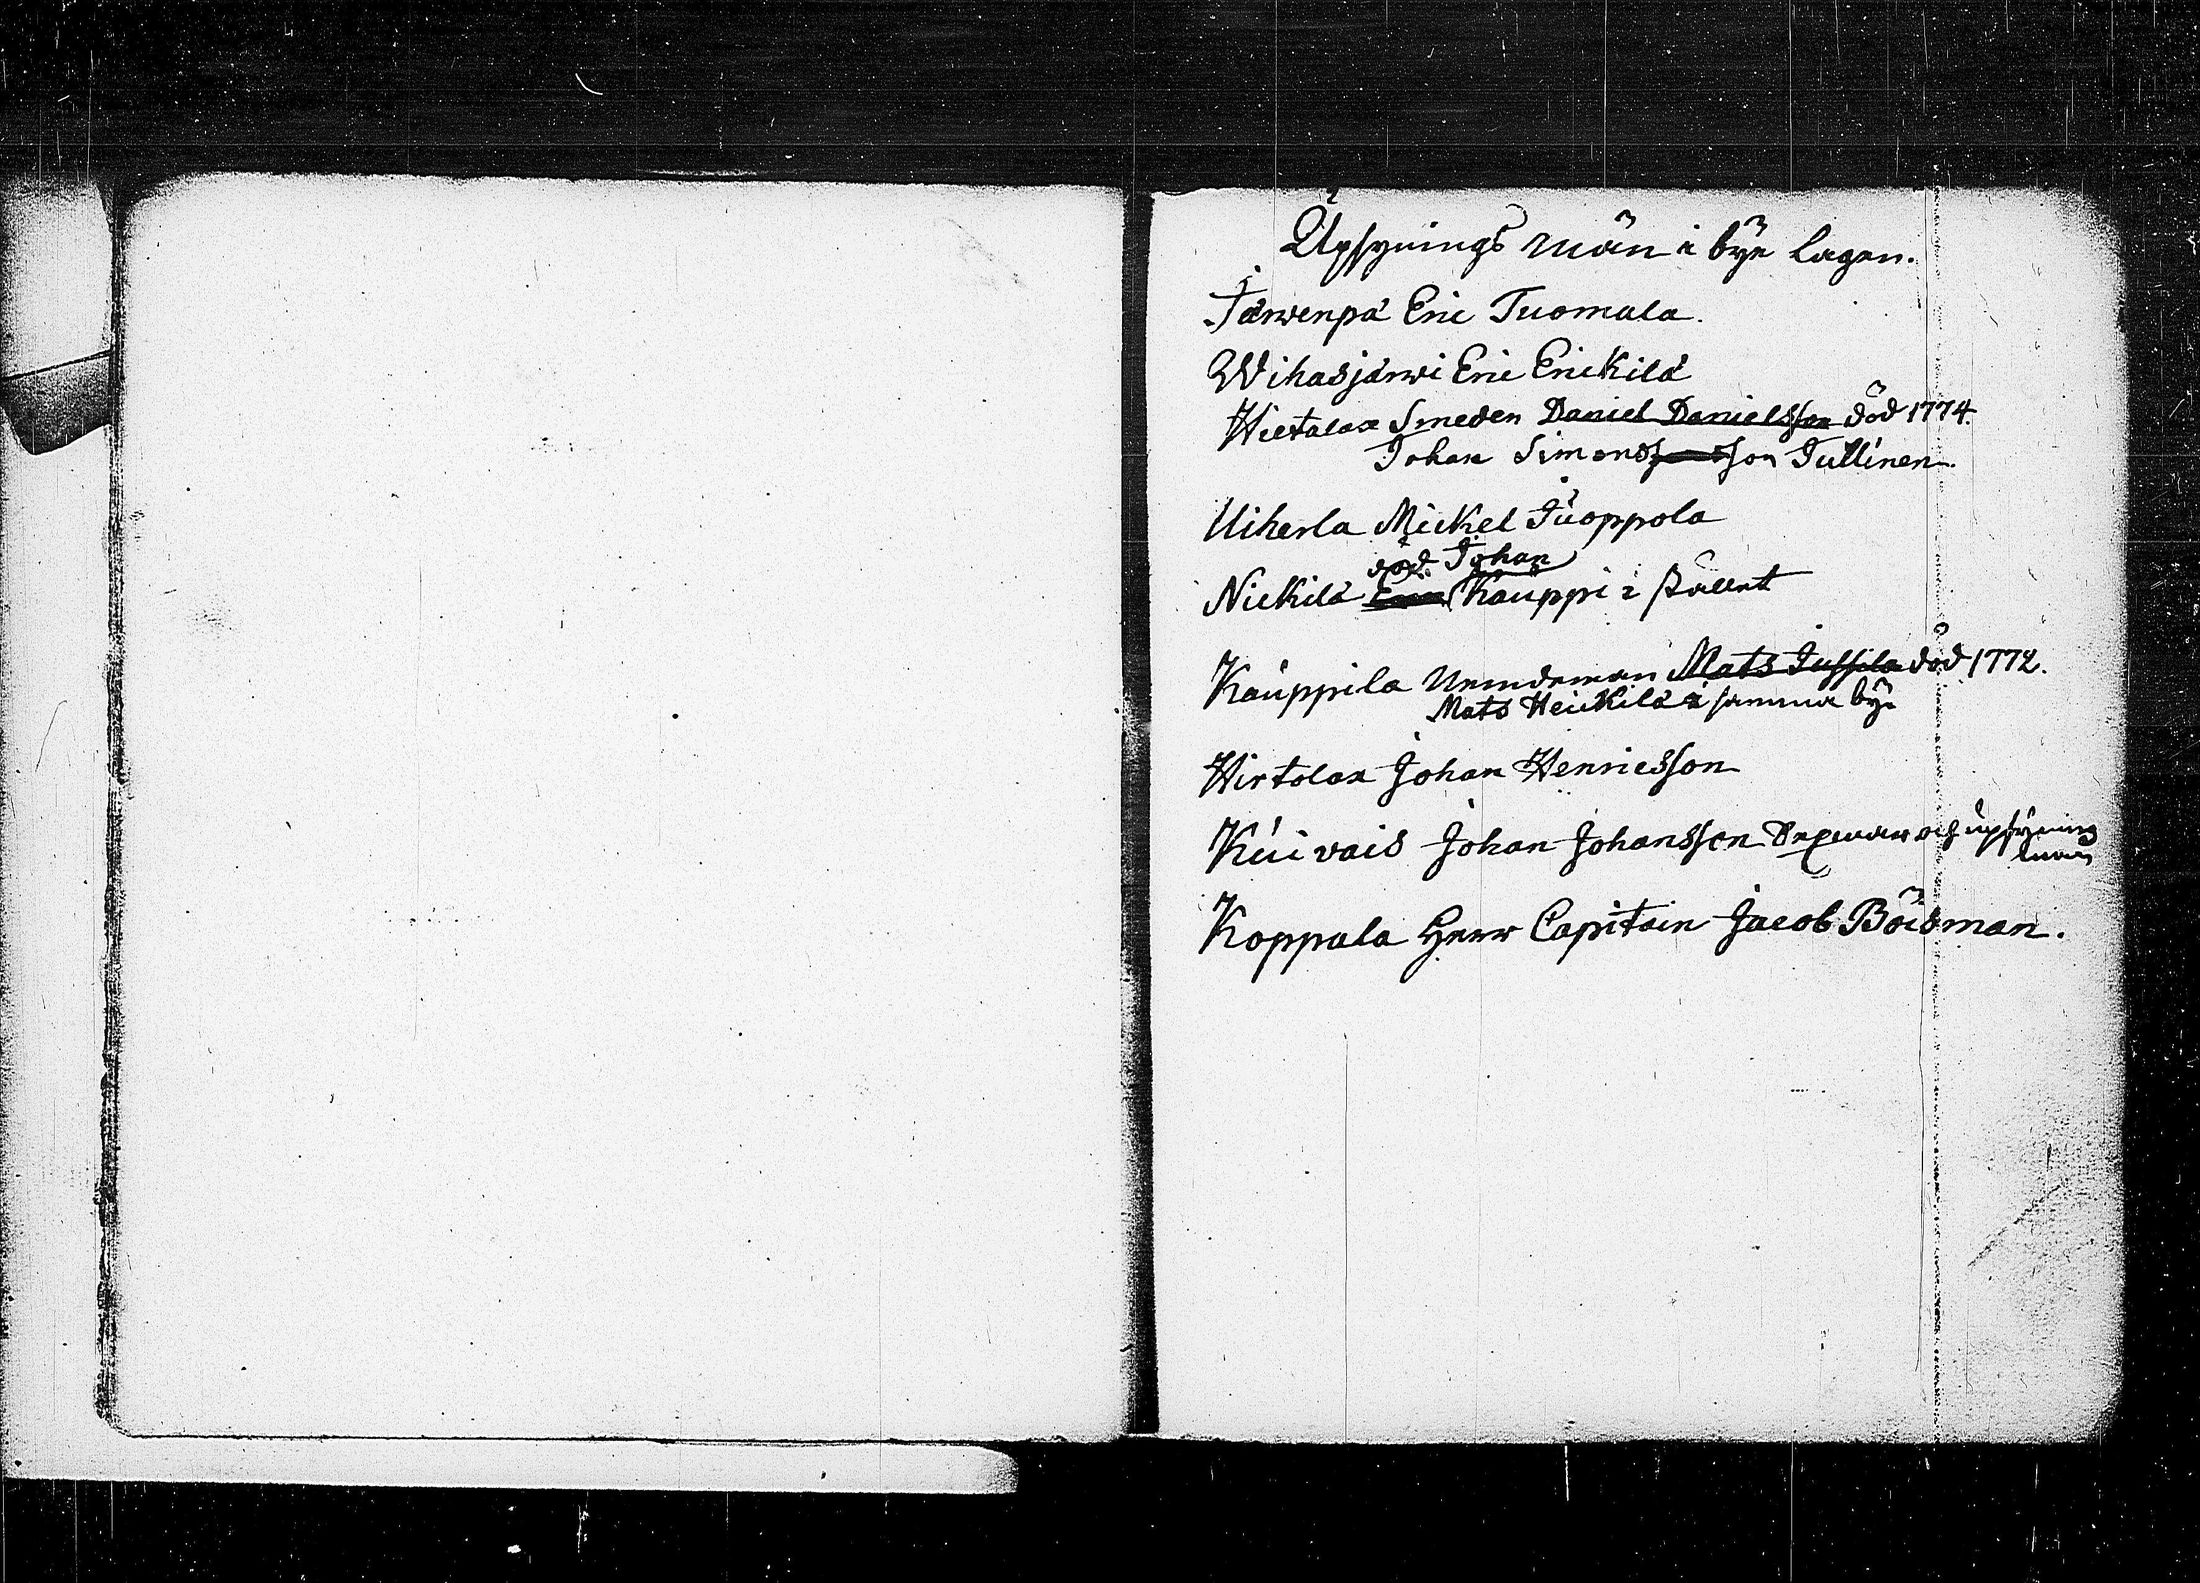 Upsynings män i bye lagen.
Järwenpä Eric Tuomala.
Wihasjärwi Eric Erickilä
Hietalax Smeden Daniel Danielsson död 1774.
Johan Simonsson Tullinen
Uiherla Mickel Juoppola
död. Johan
Nickilä Eric Kauppi i
Kauppila Nemdeman Mats Jussila död 1772.
Mats Heickilä i samma bye
Hirtolax Johan Henricsson
Kuivais Johan Johansson och upsynings
man
Koppala Herr Capitain Jacob Böisman.